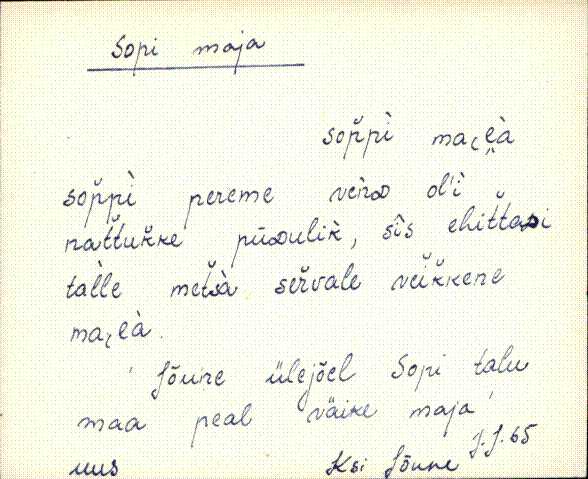 Sopi maja
sop̆pì maꞔe̬à
sop̆pì pereme venᴅ olʼì
nat̆tuk̆ke pūᴅulik̀, sîs ehit̆taᴅi
tal̀le met̆sà ser̆vale veik̆kene
maꞔeà.
Jõune ülejõel Sopi talu
maa peal väike maja,
uus Ksi Jõune J.J. 65